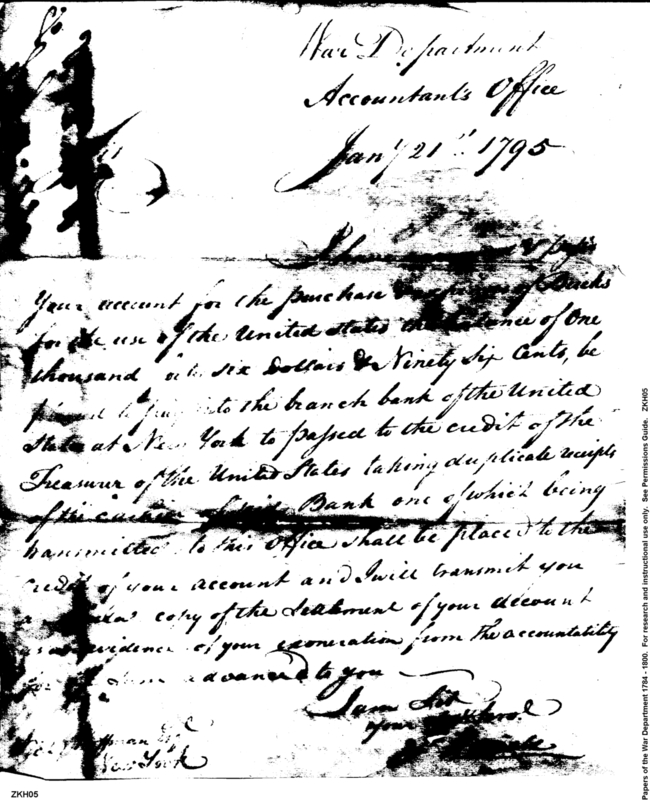 War Department
Accountant's Office
Jany 21st 1795
I have
Your account for the purchase of
for the use of the United States the balance of One
thousand six Dollars & Ninety Six Cents, be
to the branch bank of the United
States at New York to passed to the credit of the
Treasurer of the United States taking duplicate receipts
of the Bank one of which being
transmitted to this Office shall be placed to the
Credit of your account and I will transmit you
copy of the Settlement of your Account
evidence of your exoneration from the accountability
advanced to you
I am Sir
your
New York
ZKH05
Papers of the War Department 1784 - 1800. For research and instructional use only. See Permissions Guide. ZKH05